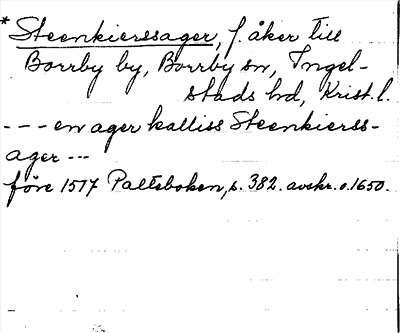 * Steenkierssager, f. åker till
Borrby by, Borrby sn, Ingel-
stads hd, Krist. l.
--- en ager kalliss Steenkierss-
ager ---
före 1517 Paltsboken, s. 382. avskr. o. 1650.